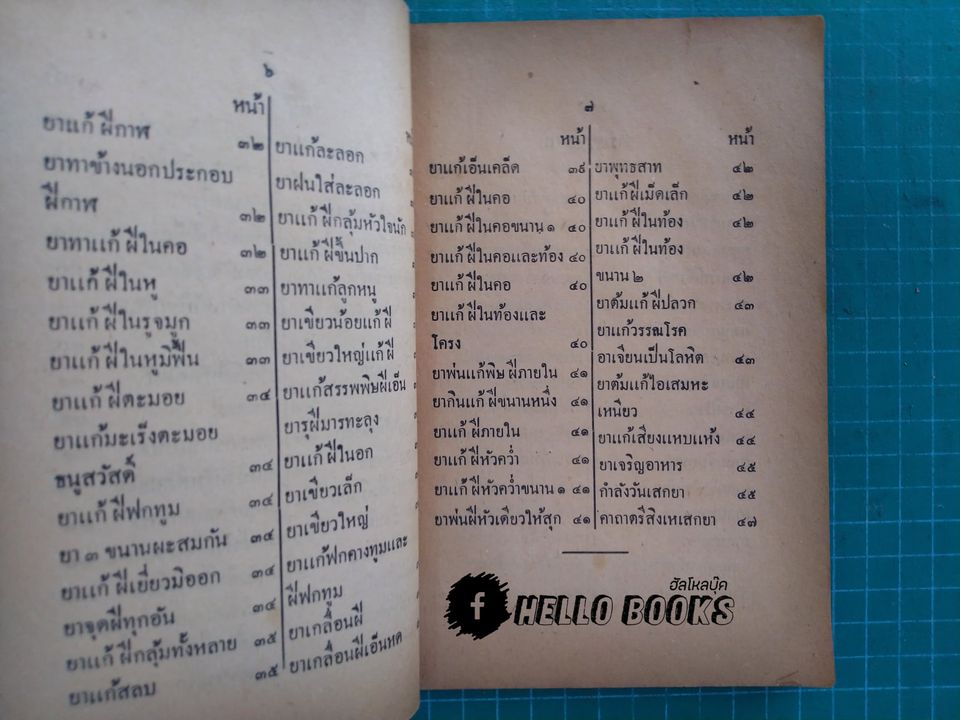 ๖
หน้า
ยาแก้ ฝีกาฬ ๓๒
ยาทาข้างนอกประกอบ
ฝีกาฬ ๓๒
ยาทาแก้ ฝีในคอ ๓๒
ยาแก้ ฝีในหู ๓๓
ยาแก้ ฝีในรูจมูก ๓๓
ยาแก้ ฝีในหูมิฟื้น ๓๓
ยาแก้ ฝีตะมอย ๓๔
ยาแก้มะเร็งตะมอย
ธนูสวัสดิ์ ๓๔
ยาแก้ ฝีฟกทูม ๓๔
ยา ๓ ขนานผะสมกัน ๓๔
ยาแก้ ฝีเยี่ยวมิออก ๓๔
ยาจุดฝีทุกอัน ๓๔
ยาแก้ ฝีกลุ้มทั้งหลาย ๓๕
ยาแก้สลบ ๓๕
ยาแก้ละลอก
ยาฝนใส่ละลอก
ยาแก้ ฝีกลุ้มหัวใจนัก
ยาแก้ ฝีขึ้นปาก
ยาทาแก้ลูกหนู
ยาเขียวน้อยแก้ ฝี
ยาเขียวใหญ่แก้ ฝี
ยาแก้สรรพพิษฝีเอ็น
ยารุฝีมารทะลุง
ยาแก้ ฝีในอก
ยาเขียวเล็ก
ยาเขียวใหญ่
ยาแก้ฟกคางทูมและ
ฝีฟกทูม
ยาเกลื่อนฝี
ยาเกลื่อนฝีเอ็นหด
๗
หน้า
ยาแก้เอ็นเคล็ด ๓๙
ยาแก้ ฝีในคอ ๔๐
ยาแก้ ฝีในคอขนาน ๑ ๔๐
ยาแก้ ฝีในคอและท้อง ๔๐
ยาแก้ ฝีในคอ ๔๐
ยาแก้ ฝีในท้องและ
โครง ๔๐
ยาพ่นแก้พิษ ฝีภายใน ๔๑
ยากินแก้ ฝีขนานหนึ่ง ๔๑
ยาแก้ ฝีภายใน ๔๑
ยาแก้ ฝีหัวคว่ำ ๔๑
ยาแก้ ฝีหัวคว่ำขนาน ๑ ๔๑
ยาพ่นฝีหัวเดียวให้สุก ๔๑
หน้า
ยาพุทธสาท ๔๒
ยาแก้ ฝีเม็ดเล็ก ๔๒
ยาแก้ ฝีในท้อง ๔๒
ยาแก้ ฝีในท้อง
ขนาน ๒ ๔๒
ยาต้มแก้ ฝีปลวก ๔๓
ยาแก้วรรณโรค
อาเจียนเป็นโลหิต ๔๓
ยาต้มแก้ไอเสมหะ
เหนียว ๔๔
ยาแก้เสียงแหบแห้ง ๔๔
ยาเจริญอาหาร ๔๕
กำลังวันเสกยา ๔๕
คาถาตรีสิงเหเสกยา ๔๗
ฮัลโหลบุ๊ค
f HELLO BOOKS